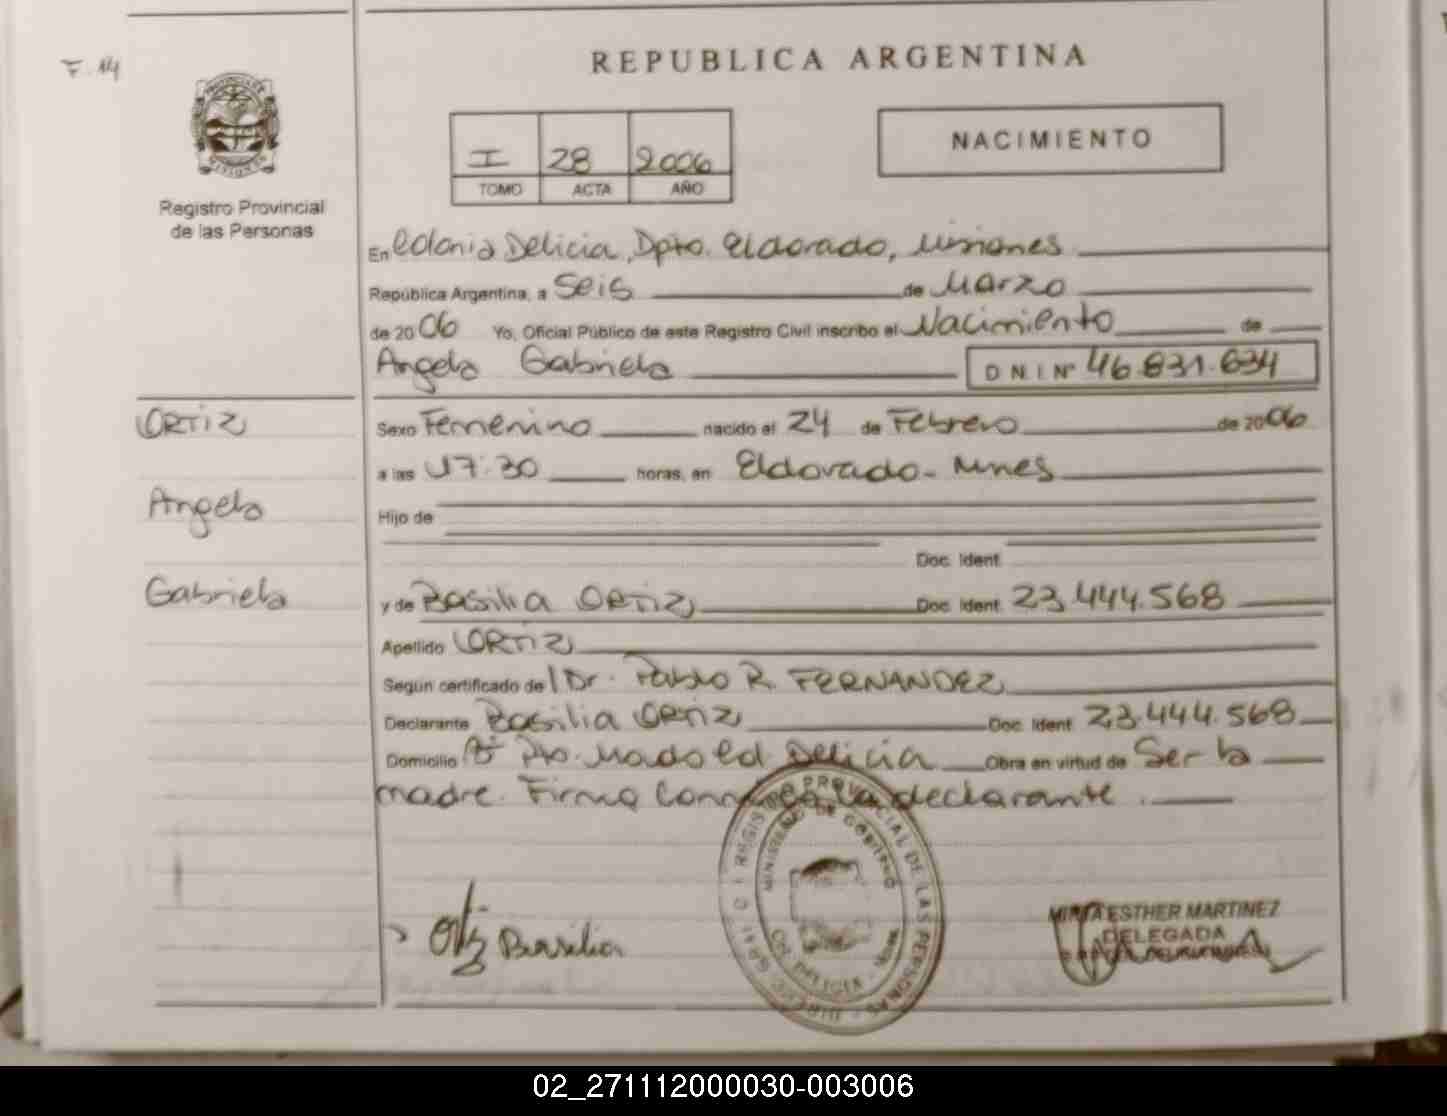 F. 14
REPUBLICA ARGENTINA
I 28 2006
TOMO ACTA AÑO
NACIMIENTO
Registro Provincial
de las Personas
En Colonia Delicia, Dpto. Eldorado, Misiones
República Argentina, a Seis de Marzo
de 2006 Yo, Oficial Público de este Registro Civil inscribo el Nacimiento de
Angela Gabriela D N I Nº 46.831.634
ORTIZ
Sexo Femenino nacido el 24 de Febrero de 2006
a las 17:30 horas, en Eldorado - Mnes
Angela
Hijo de
Doc. Ident.
Gabriela
y de Basilia ORTIZ Doc. Ident. 23.444.568
Apellido ORTIZ
Según certificado de Dr. Pablo R. FERNANDEZ
Declarante Basilia ORTIZ Doc. Ident. 23.444.568
Domicilio Bº Pto. Mado Delicia Obra en virtud de Ser la
madre. Firma la declarante.
REGISTRO PROVINCIAL DE LAS PERSONAS
MINISTERIO DE GOBIERNO
COL. DELICIA
Ortiz Basilia
MIRTA ESTHER MARTINEZ
DELEGADA
02_271112000030-003006